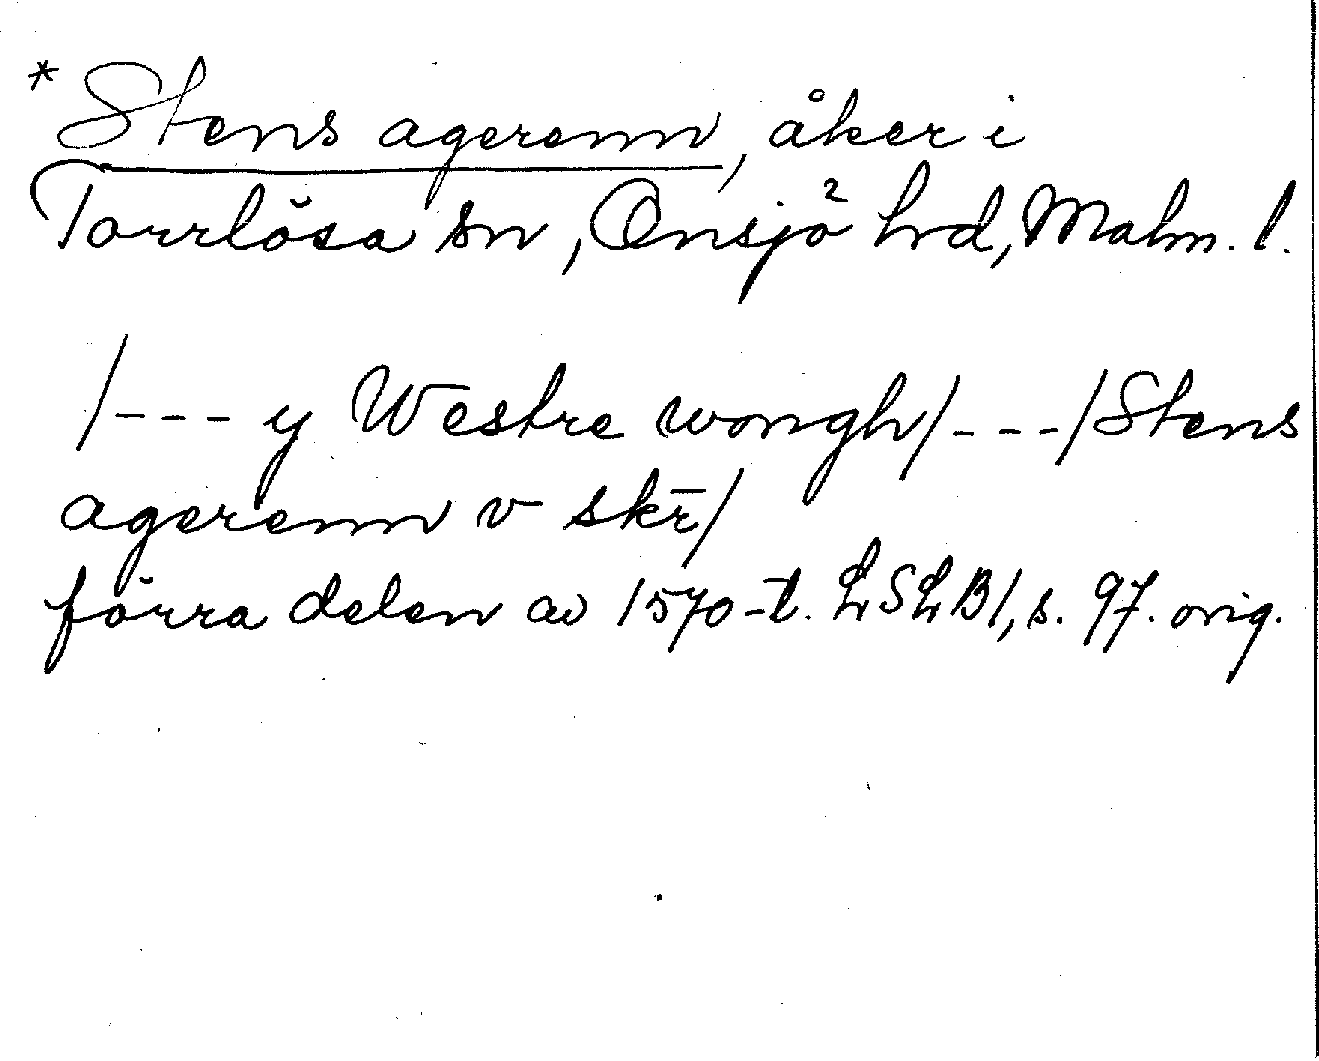 *Stens agerenn, åker i
Torrlösa sn, Onsjö hrd, Malm. l.
/--- y Westre wongh/---/Stens
agerenn v skr̄/
förra delen av 1570-t. LSLB1, s. 97. orig.